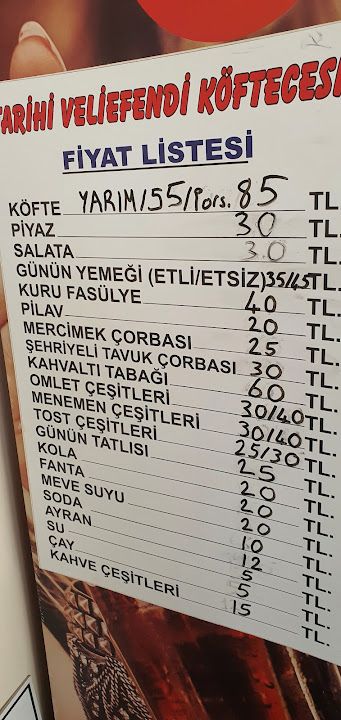 TARİHİ VELİEFENDİ KÖFTECESİ
FİYAT LİSTESİ
KÖFTE YARIM/55/Pors. 85 TL.
PİYAZ 30 TL.
SALATA 30 TL.
GÜNÜN YEMEĞİ (ETLİ/ETSİZ) 35/45 TL.
KURU FASÜLYE 40 TL.
PİLAV 20 TL.
MERCİMEK ÇORBASI 25 TL.
ŞEHRİYELİ TAVUK ÇORBASI 30 TL.
KAHVALTI TABAĞI 60 TL.
OMLET ÇEŞİTLERİ 30/40 TL.
MENEMEN ÇEŞİTLERİ 30/40 TL.
TOST ÇEŞİTLERİ 25/30 TL.
GÜNÜN TATLISI 25 TL.
KOLA 20 TL.
FANTA 20 TL.
MEVE SUYU 20 TL.
SODA 10 TL.
AYRAN 12 TL.
SU 5 TL.
ÇAY 5 TL.
KAHVE ÇEŞİTLERİ 15 TL.